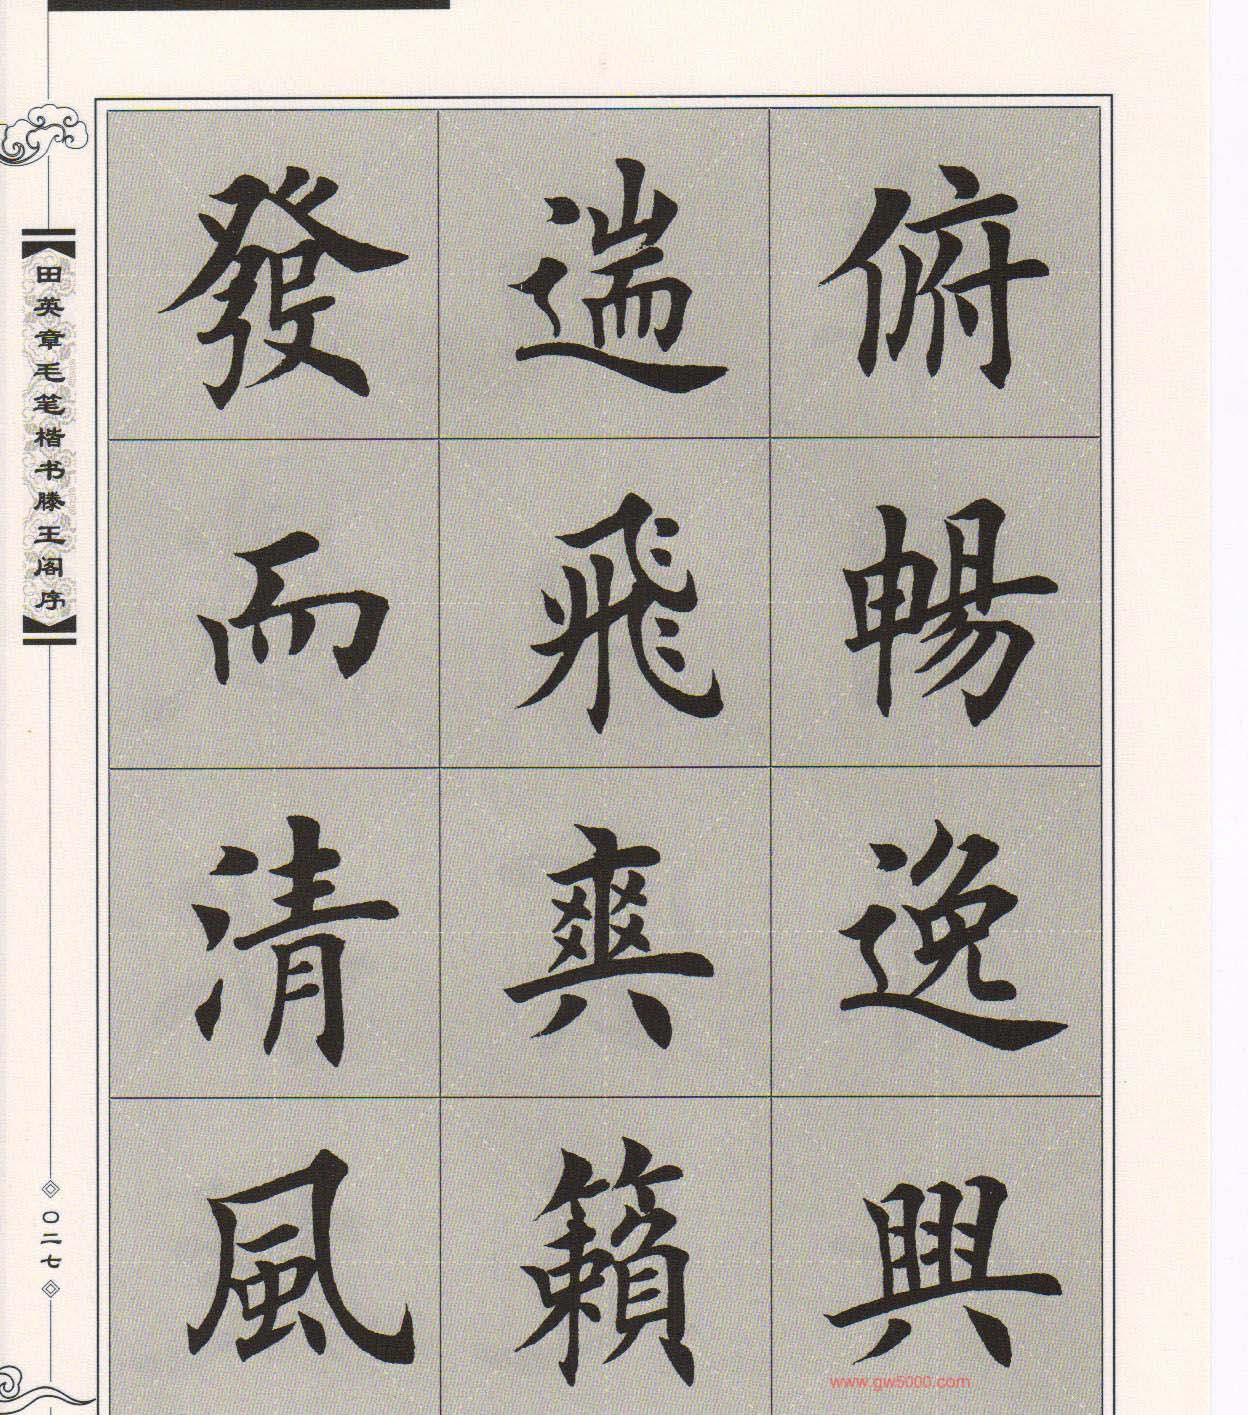 俯暢逸興
遄飛爽籟
發而清風
田英章毛笔楷书滕王阁序
〇二七
www.gw5000.com